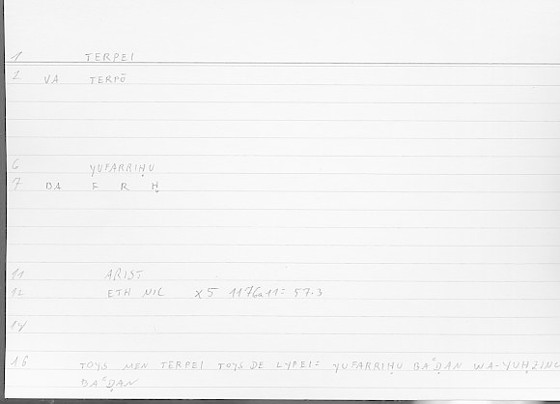 1 TERPEI
2 VA TERPŌ
6 YUFARRIḤU
7 BA F R Ḥ
11 ARIST
12 ETH NIC x5 1176a11= 57.3
14
16 TOYS MEN TERPEI TOYS DE LYPEI= YUFARRIḤU BAʿḌAN WA-YUḤZINU
BAʿḌAN